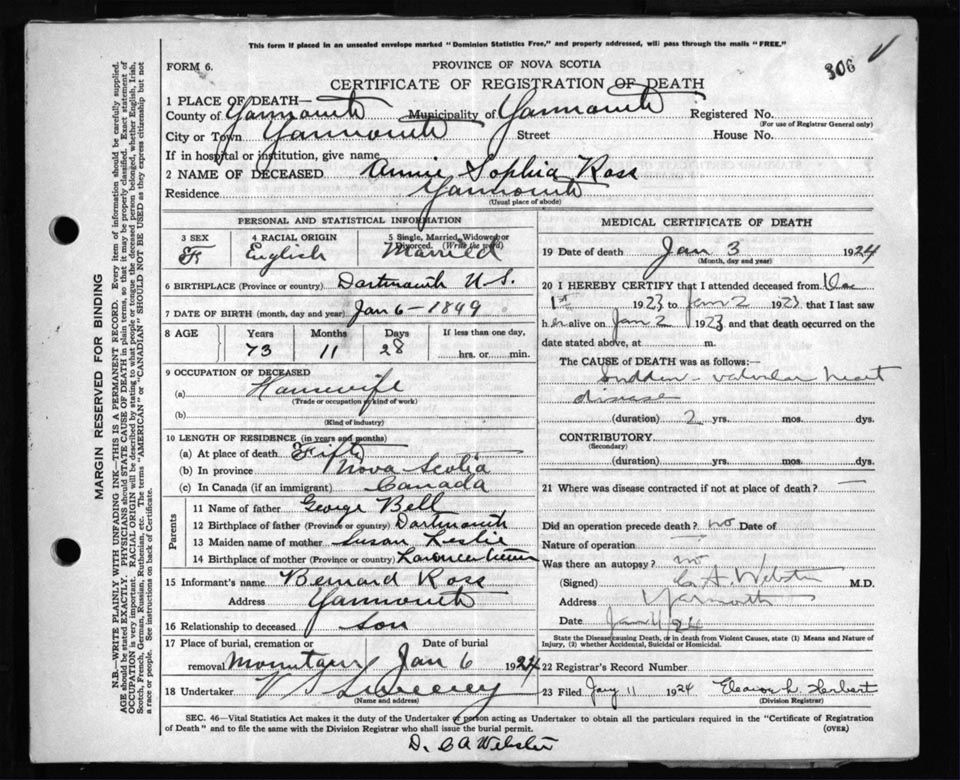 This form if placed in an unsealed envelope marked "Dominion Statistics Free," and properly addressed, will pass through the mails "FREE."
FORM 6.
PROVINCE OF NOVA SCOTIA
306
CERTIFICATE OF REGISTRATION OF DEATH
1 PLACE OF DEATH—
County of Yarmouth Municipality of Yarmouth Registered No.
(For use of Registrar General only)
City or Town Yarmouth Street House No.
If in hospital or institution, give name
2 NAME OF DECEASED Annie Sophia Ross
Residence Yarmouth
(Usual place of abode)
PERSONAL AND STATISTICAL INFORMATION
3 SEX F
4 RACIAL ORIGIN English
5 Single, Married, Widowed or Divorced. (Write the word) Married
6 BIRTHPLACE (Province or country) Dartmouth N.S.
7 DATE OF BIRTH (month, day and year) Jan 6 - 1849
8 AGE Years Months Days If less than one day,
73 11 28 hrs. or min.
9 OCCUPATION OF DECEASED
(a) Housewife
(Trade or occupation or kind of work)
(b)
(Kind of industry)
10 LENGTH OF RESIDENCE (in years and months)
(a) At place of death Fifty
(b) In province Nova Scotia
(c) In Canada (if an immigrant) Canada
Parents
11 Name of father George Bell
12 Birthplace of father (Province or country) Dartmouth
13 Maiden name of mother Susan Leslie
14 Birthplace of mother (Province or country)
15 Informant's name Bernard Ross
Address Yarmouth
16 Relationship to deceased son
17 Place of burial, cremation or removal Mountain Date of burial Jan 6 1924
18 Undertaker V S Sweeney
(Name and address)
MEDICAL CERTIFICATE OF DEATH
19 Date of death Jan 3 1924
(Month, day and year)
20 I HEREBY CERTIFY that I attended deceased from Dec
1st 1923 to Jan 2 1923 that I last saw
her alive on Jan 2 1923 and that death occurred on the
date stated above, at m.
The CAUSE of DEATH was as follows:—
Sudden - valvular heart
disease
(duration) 2 yrs. mos. dys.
CONTRIBUTORY
(Secondary)
(duration) yrs. mos. dys.
21 Where was disease contracted if not at place of death? —
Did an operation precede death? no Date of
Nature of operation —
Was there an autopsy? no
(Signed) C. A. Webster M.D.
Address Yarmouth
Date Jan 4/24
State the Disease causing Death, or in death from Violent Causes, state (1) Means and Nature of
Injury, (2) whether Accidental, Suicidal or Homicidal.
22 Registrar's Record Number
23 Filed Jany 11 1924 Eleanor L. Herbert
(Division Registrar)
SEC. 46—Vital Statistics Act makes it the duty of the Undertaker or person acting as Undertaker to obtain all the particulars required in the "Certificate of Registration
of Death" and to file the same with the Division Registrar who shall issue the burial permit.
(OVER)
Dr. C A Webster
MARGIN RESERVED FOR BINDING
N.B.—WRITE PLAINLY WITH UNFADING INK—THIS IS A PERMANENT RECORD. Every item of information should be carefully supplied.
AGE should be stated EXACTLY. PHYSICIANS should STATE CAUSE OF DEATH in plain terms, so that it may be properly classified. Exact statement of
OCCUPATION is very important. RACIAL ORIGIN will be described by stating to what people or tongue the deceased person belonged, whether English, Irish,
Scotch, French, German, Russian, Ruthenian, etc. The terms "AMERICAN" or "CANADIAN" SHOULD NOT BE USED as they express citizenship but not
a race or people. See instructions on back of Certificate.